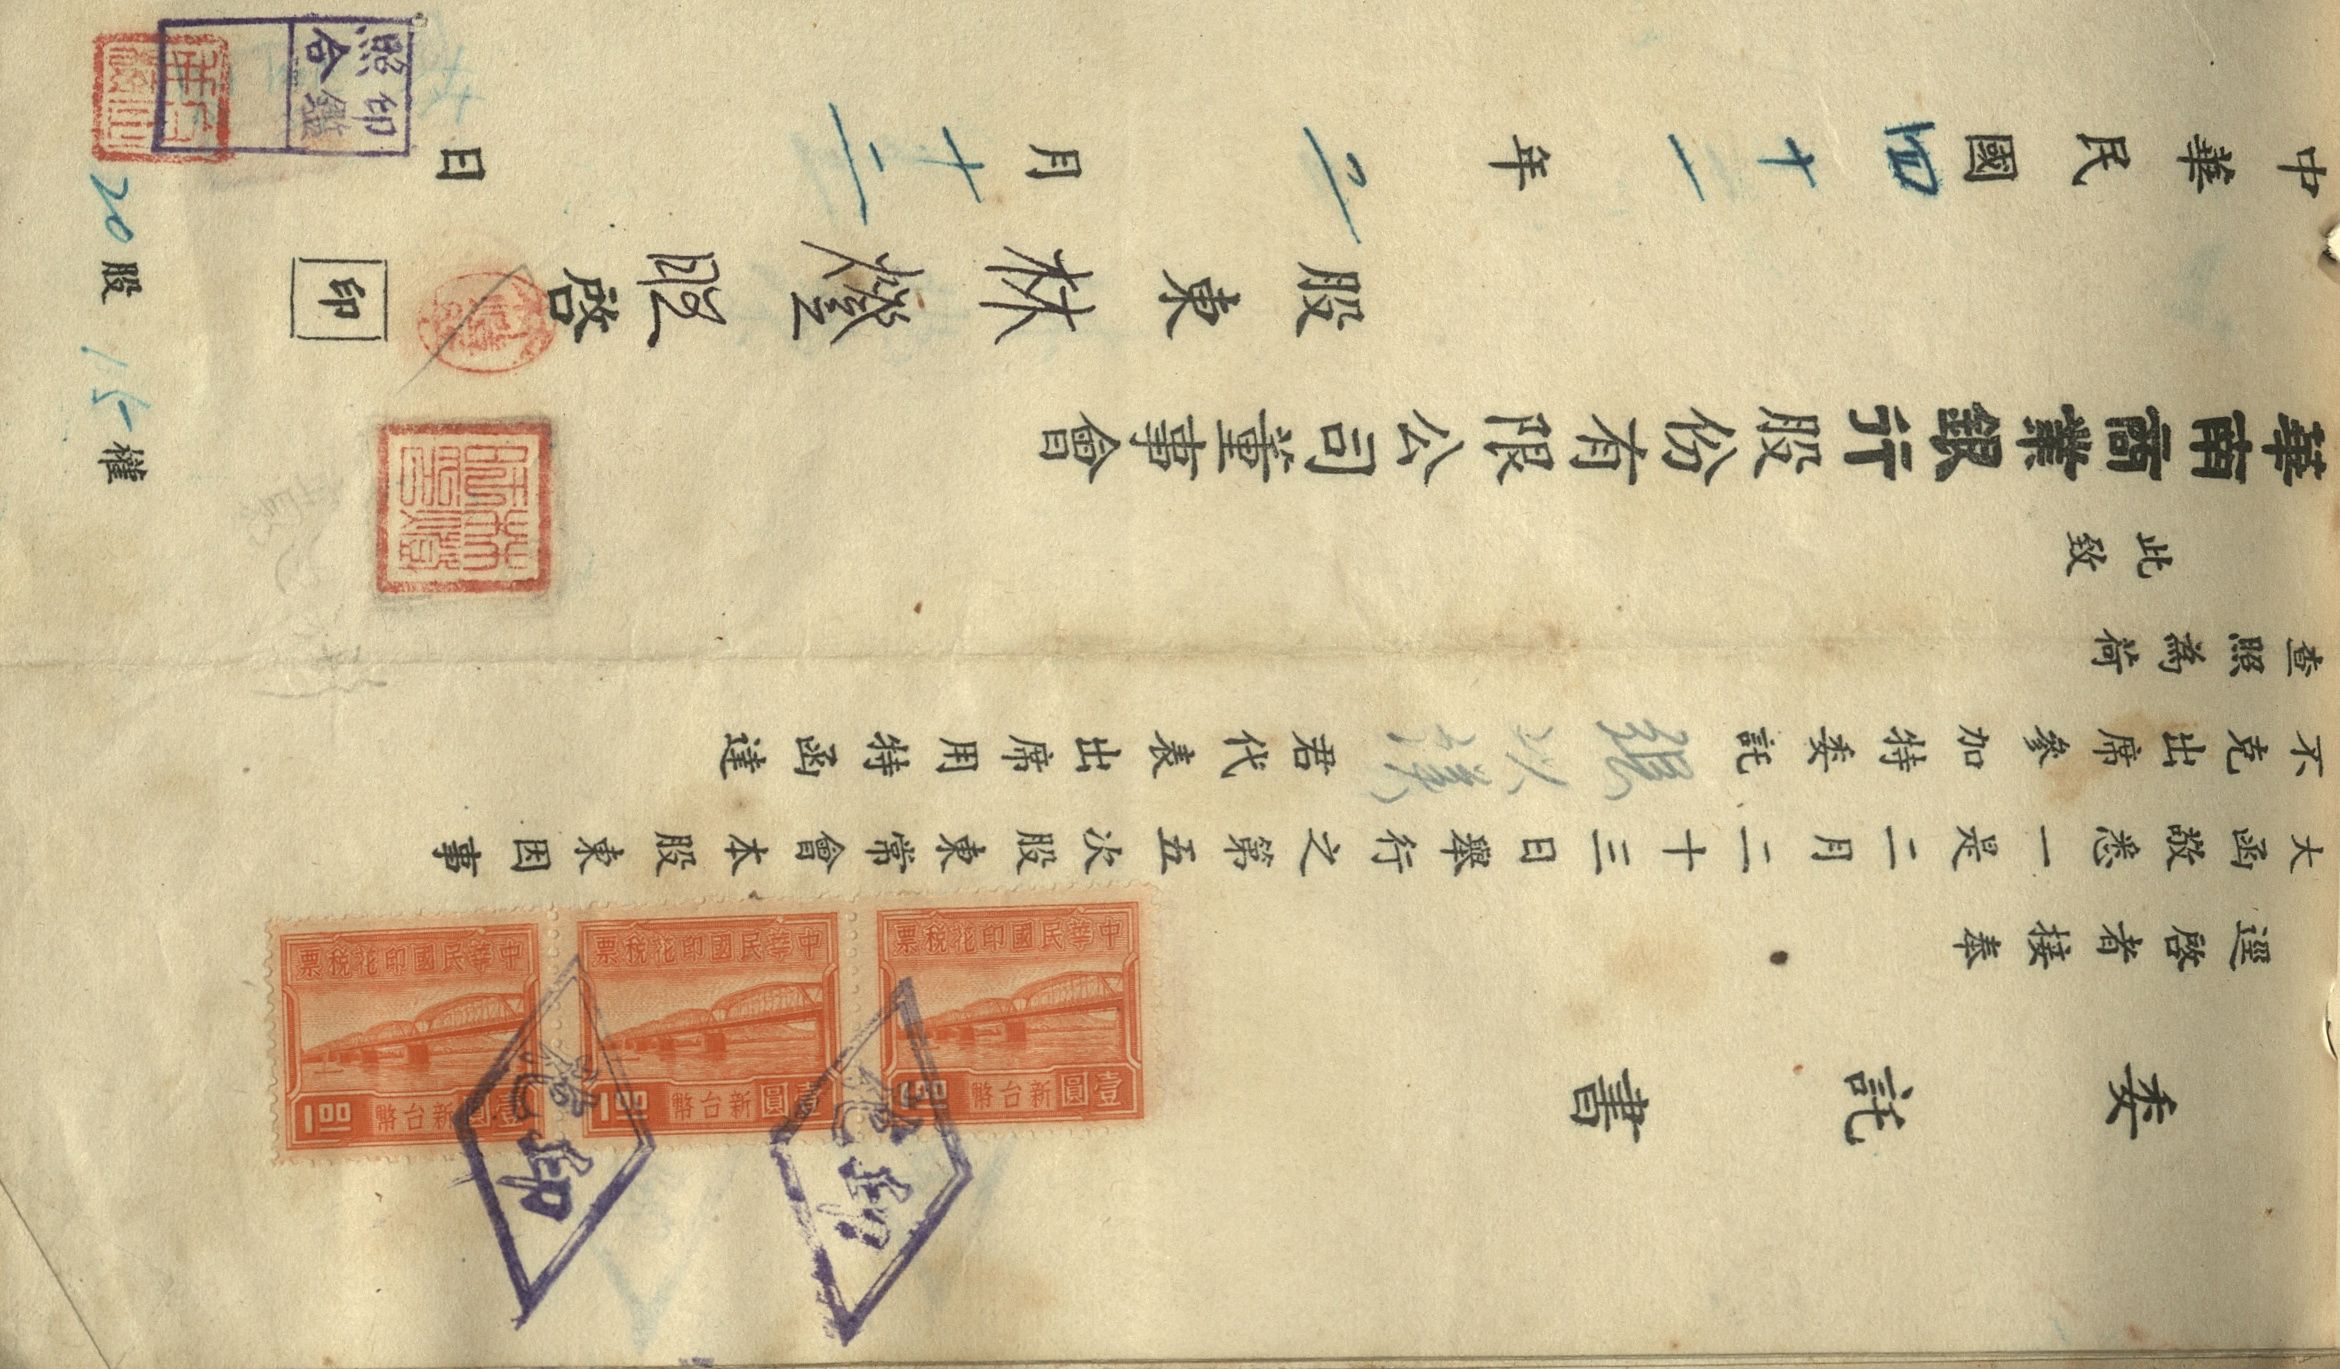 委託書
逕啓者接奉
大函敬悉一是二月二十三日舉行之第五次股東常會本股東因事
不克出席參加特委託 君代表出席用特函達
查照為荷
此致
華南商業銀行股份有限公司董事會
股東 林燈 啓 印
中華民國四十一年二月十二日
印鑑
照合
20股 15權
中華民國印花稅票
壹圓 新台幣 1.00
中華民國印花稅票
壹圓 新台幣 1.00
中華民國印花稅票
壹圓 新台幣 1.00